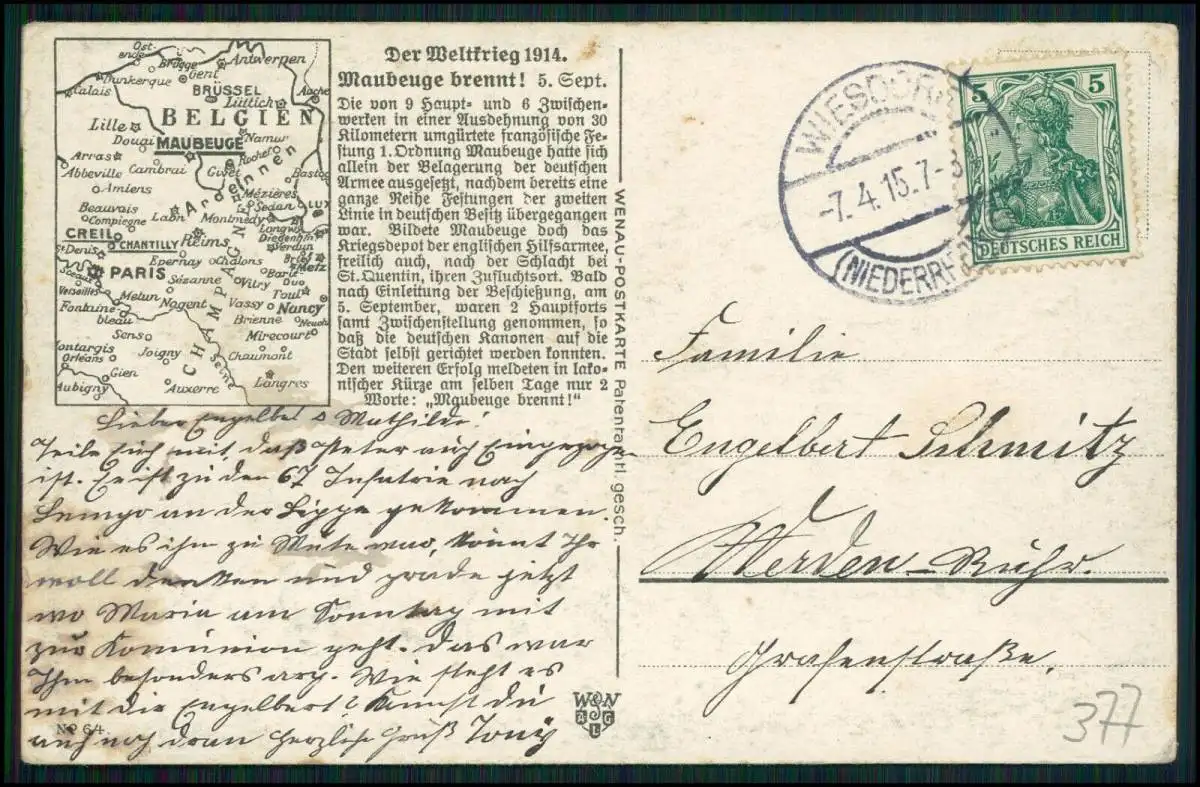 Ostende
Brügge
Antwerpen
Dunkerque
Gent
Calais
BRÜSSEL
Aache
Lüttich
BELGIEN
Lille
Douai
MAUBEUGE
Namur
Arras
Cambrai
Givet
Rochef.
Abbeville
Bastog
Amiens
Ardennen
Mézières
Sedan
Beauvais
LUX
Compiegne
Laon
Montmédy
Longwy
CREIL
CHANTILLY
Reims
Diedenhfn
Verdun
St.Denis
Brief
Metz
Epernay
Chalons
Sceaux
PARIS
Bar le Duc
Versailles
Sézanne
Vitry
Toul
Melun
Nogent
Vassy
Nancy
Fontainebleau
Brienne
Neuch
Sens
Mirecourt
Montargis
Joigny
Chaumont
Orléans
CHAMPAGNE
Seine
Gien
Langres
Aubigny
Auxerre
Der Weltkrieg 1914.
Maubeuge brennt! 5. Sept.
Die von 9 Haupt- und 6 Zwischen-
werken in einer Ausdehnung von 30
Kilometern umgürtete französische Fe-
stung 1. Ordnung Maubeuge hatte sich
allein der Belagerung der deutschen
Armee ausgesetzt, nachdem bereits eine
ganze Reihe Festungen der zweiten
Linie in deutschen Besitz übergegangen
war. Bildete Maubeuge doch das
Kriegsdepot der englischen Hilfsarmee,
freilich auch, nach der Schlacht bei
St. Quentin, ihren Zufluchtsort. Bald
nach Einleitung der Beschießung, am
5. September, waren 2 Hauptforts
samt Zwischenstellung genommen, so
daß die deutschen Kanonen auf die
Stadt selbst gerichtet werden konnten.
Den weiteren Erfolg meldeten in lako-
nischer Kürze am selben Tage nur 2
Worte: „Maubeuge brennt!"
Lieber Engelbert & Mathilde!
Teile Euch mit, daß Peter auch Eingezogen
ist. Er ist zu den 67 Infatrie nach
Lemgo an der Lippe gekommen.
Wie es ihm zu Mute war, könnt Ihr
woll denken und grade jetzt
wo Maria am Sonntag mit
zur Kommunion geht. Das war
Ihm besonders arg. Wie steht es
mit die Engelbert? Kannst du
auch noch dran herzliche Gruß Tony
No 64.
WENAU-POSTKARTE Patentamtl. gesch.
W N
A G
L
WIESDORF
-7.4.15.7-8
(NIEDERRHEIN)
5 5
DEUTSCHES REICH
Familie
Engelbert Schmitz
Werden-Ruhr.
Grafenstraße.
377